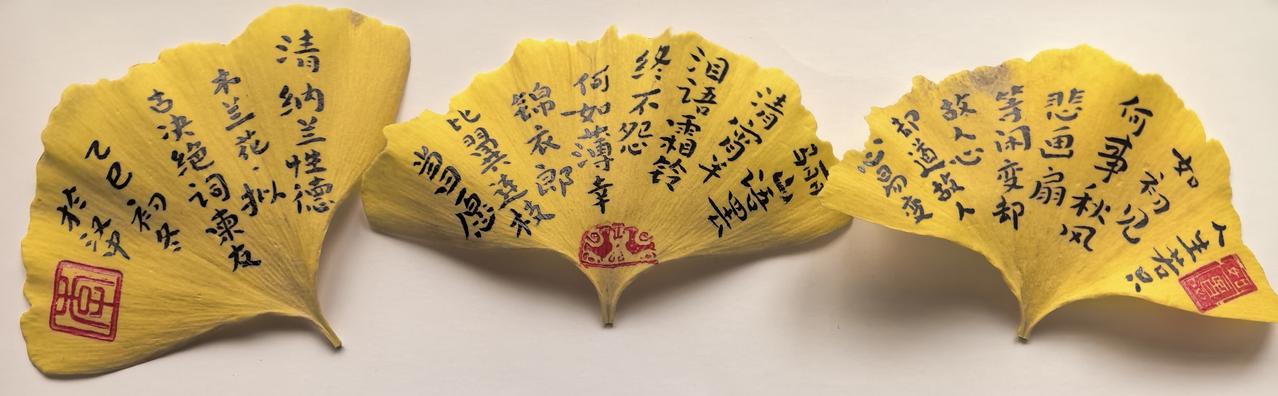 人生若只
如初见
何事秋风
悲画扇
等闲变却
故人心
却道故人
心易变
骊山语罢
清宵半
泪语霜铃
终不怨
何如薄幸
锦衣郎
比翼连枝
当日愿
清 纳兰性德
木兰花·拟
古决绝词柬友
乙巳初冬
於汉中